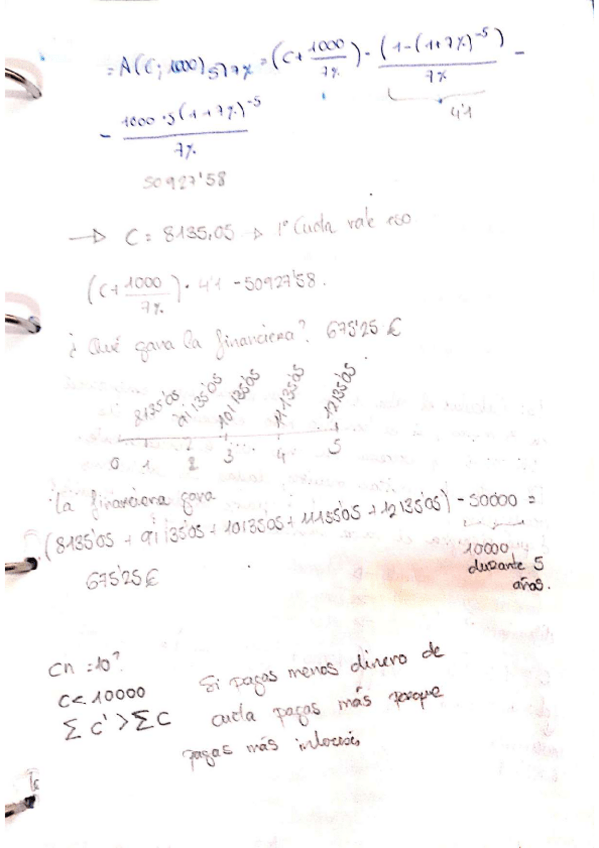 = A(C; 1000) 5 7% = (C + 1000 / 7%) · (1-(1+7%)^-5) / 7% -
4'1
- 1000 · 5 (1+7%)^-5 / 7%
50927'58
→ C = 8135,05 → 1º Cuota vale eso
(C + 1000 / 7%) · 4'1 - 50927'58.
¿Qué gana la financiera? 675'25 €
8135'05 9135'05 10135'05 11135'05 12135'05
0 1 2 3 4 5
La financiera gana
(8135'05 + 9135'05 + 10135'05 + 11135'05 + 12135'05) - 50000 =
675'25 €
10000
durante 5
años.
Cn = 10?
C < 10000
Σ C' > Σ C
Si pagas menos dinero de
cuota pagas más porque
pagas más intereses